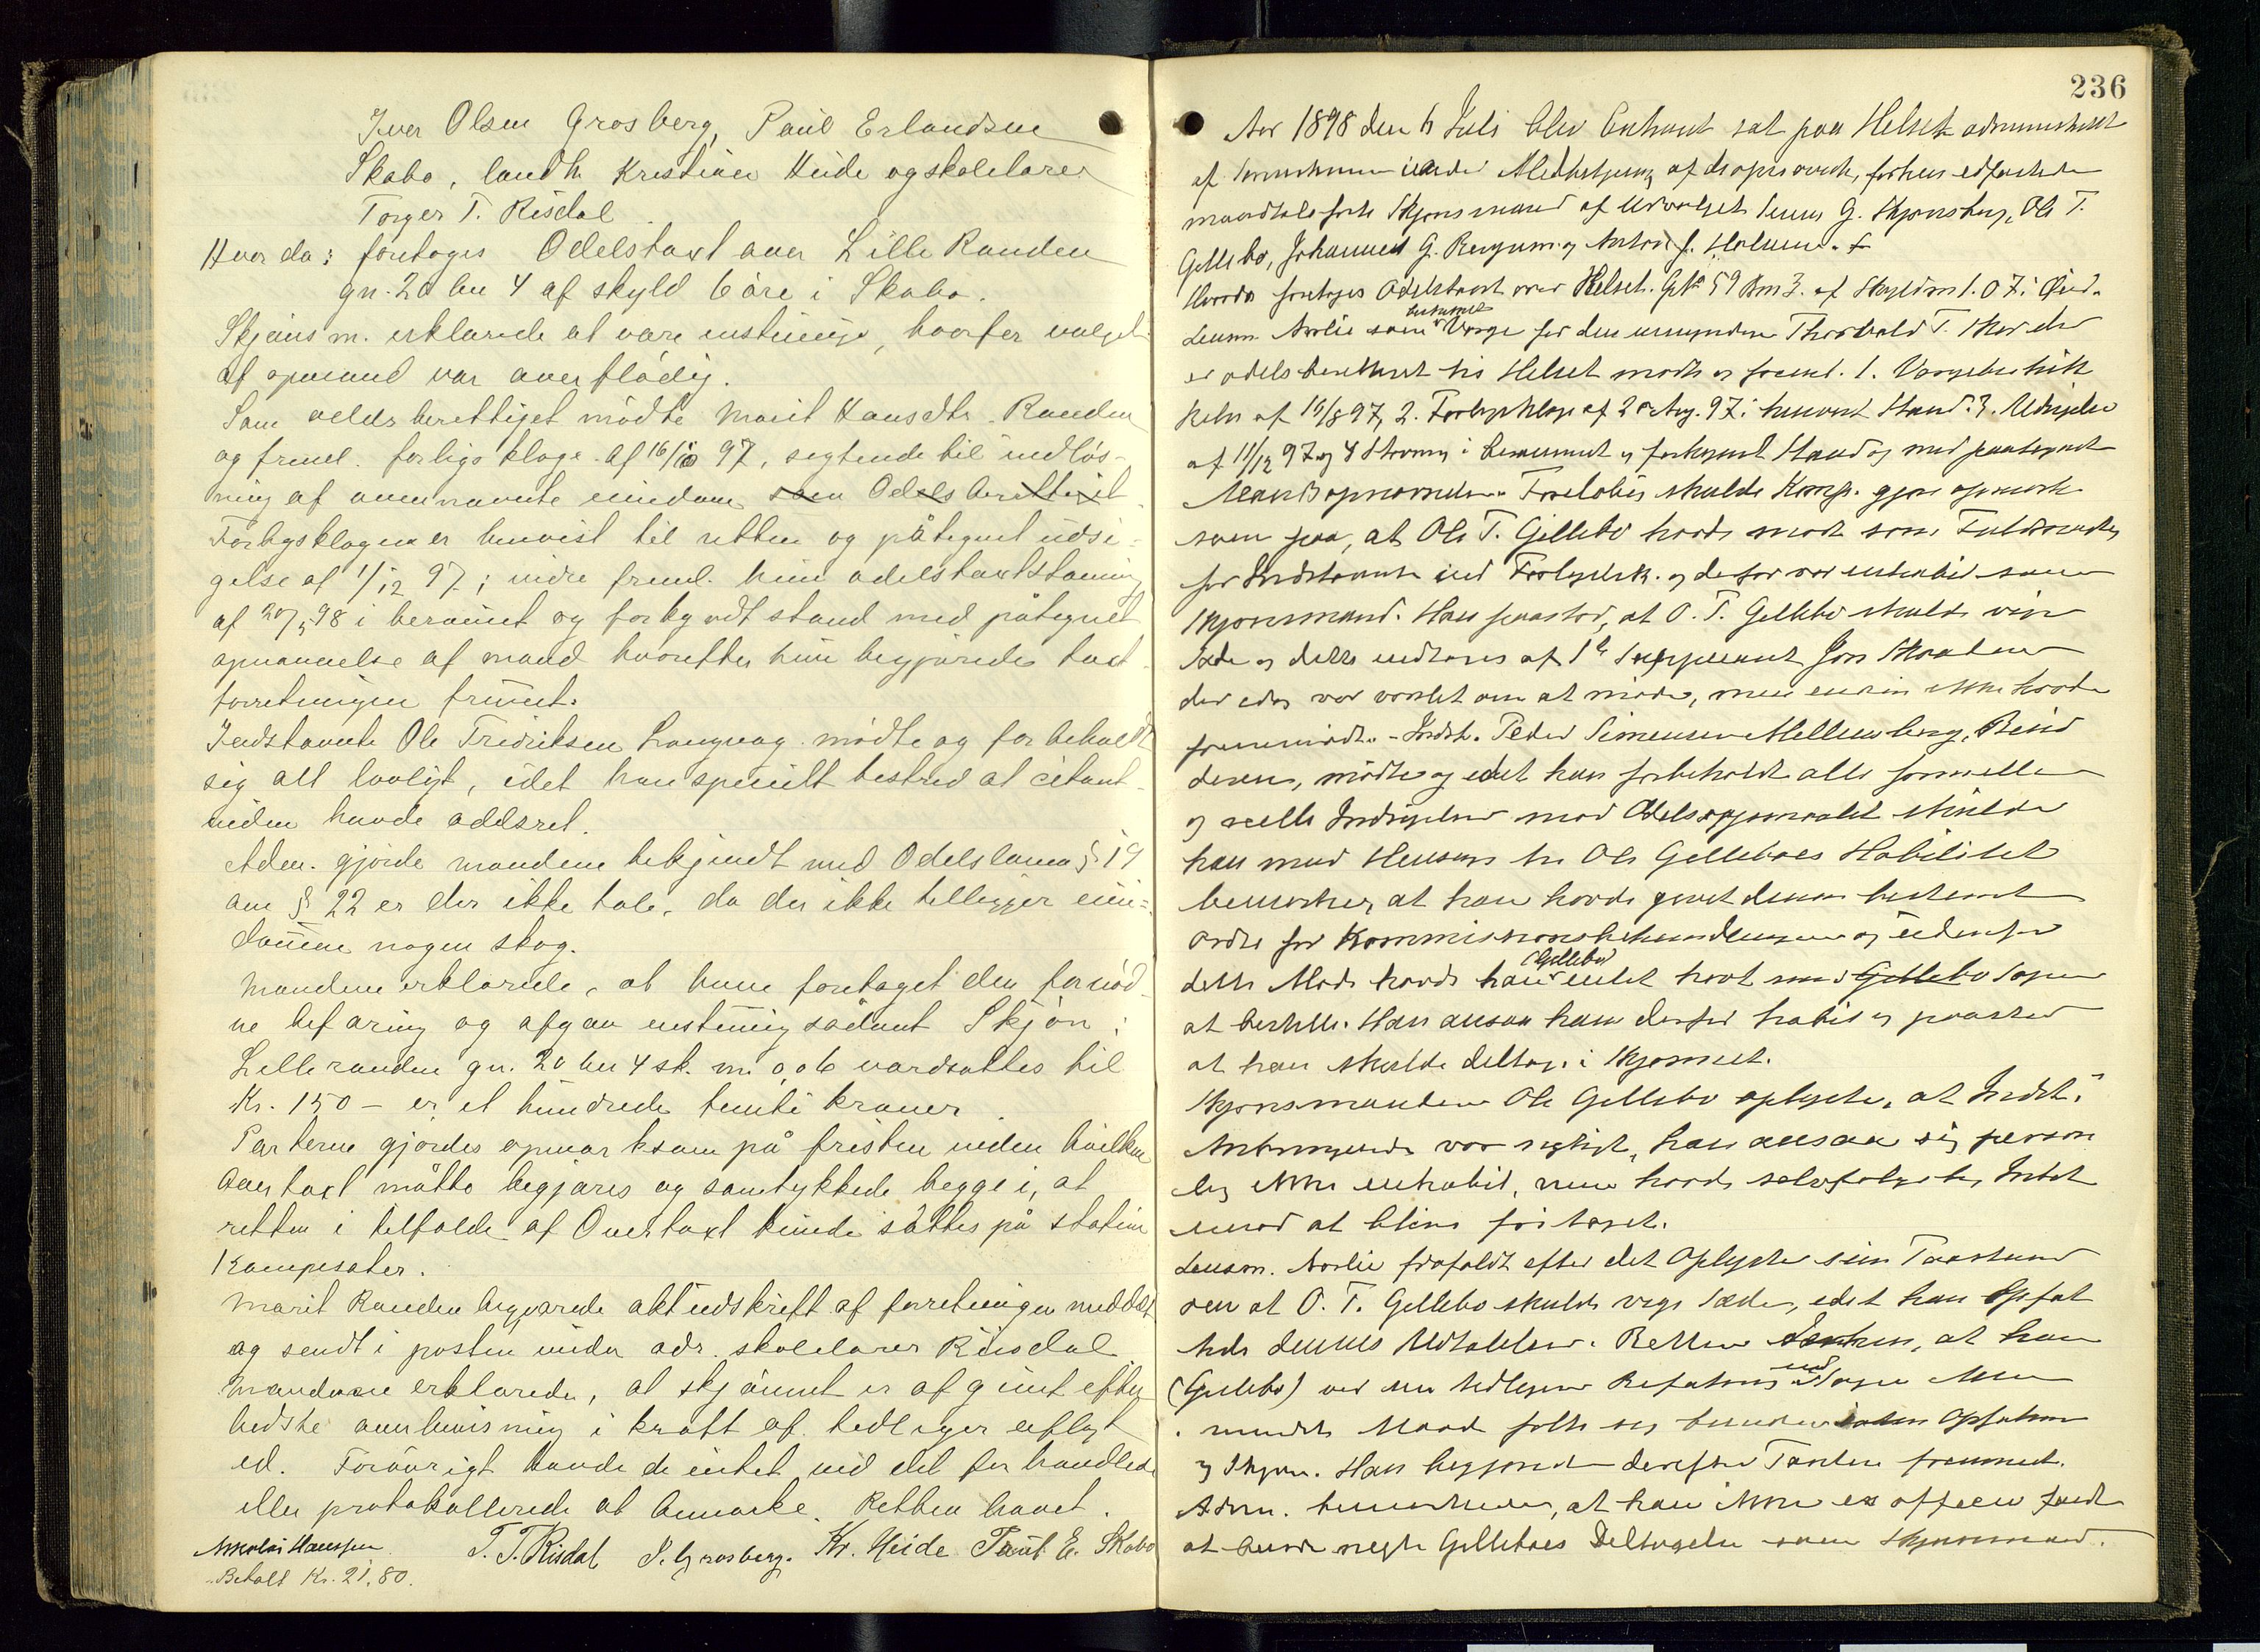 Iver Olsen Grosberg, Paul Erlandsen
Skabo, landh. Kristian Heide og skolelærer
Torger T. Risdal
Hvor da: foretoges Odelstaxt over Lille Randen
gn. 20 bn 4 af skyld 6 øre i Skabo.
Skjønsm. erklærede at være enstemige, hvorfor valget
af opmand var overflødig.
Som odelsberettiget mødte Marit Hansdtr. Randen
og freml. forligsklage af 16/10 97, sigtende til indløs-
ning af ovennævnte eiendom som Odelsberettiget
Forligsklagen er henvist til retten og påtegnet udsi-
gelse af 1/12 97; videre freml. hun odelstaxtstævning
af 20/5 98 i berammet og forkyndt stand med påtegnet
opnævnelse af mænd hvorefter hun begjærede taxt-
forretningen fremmet.
Indstævnte Ole Fredriksen Langvag mødte og forbeholdt
sig alt lovligt, idet han specielt bestred at citant-
inden havde odelsret.
Adm. gjorde mændene bekjendt med Odelsloven § 19
om § 22 er der ikke tale, da der ikke tilligger eien-
dommen nogen skog.
Mændene erklærede, at have foretaget den fornød-
ne befaring og afgav enstemmig sådant Skjøn:
Lilleranden gn. 20 bn 4 sk. m. 0,06 værdsattes til
Kr. 150 – er et hundrede femti kroner
Parterne gjordes opmærksom på fristen inden hvilken
Overtaxt måtte begjæres og samtykkede begge i, at
retten i tilfælde af Overtaxt kunde sættes på station
Kampesæter.
Marit Randen begjærede aktudskrift af forretningen meddelt
og sendt i posten under adr. skolelærer Risdal
Mændene erklærede, at skjønnet er afgivet efter
bedste overbevisning i kraft af tidligere aflagt
ed. Forøvrigt havde de intet ved det forhandlede
eller protokollerede at bemærke. Retten hævet.
Nikolai Hanssen T. T. Risdal I. Grosberg. Kr. Heide Paul E. Skabo
Betalt Kr. 21.80.
236
Aar 1898 den 6 Juli blev Extraret sat paa Helset administreret
af Sorenskriveren under Medbetjening af de opnævnte, forhen edfæstede
mandtalsførte Skjønsmænd af Udvalget Simen G. Skjønsberg, Ole T.
Gillebo, Johannes G. Rengum og Anton J. Holmen.
Hvorda foretoges Odelstaxt over Helset. Gn. 59 Bn 3. af Skyld m 1.07 i Øier.
Lensm. Norlie som beskikket Værge for den umyndige Thorvald T. der
er odelsberettiget til Helset mødte og freml. 1. Værgebeskik
kelse af 15/8 97, 2. Forligsklage af 20 Aug. 97 i henvist Stand. 3. Udsigelse
af 11/12 97 og 4 Stævning i berammet og forkyndt Stand og med paategnet
Mandsopnævnelse. Foreløbig skulde Komp. gjøre opmærk
som paa, at Ole T. Gillebo havde mødt som Fuldmægtig
for Indstævnte ved Forligsk. og derfor var inhabil som
Skjønsmand. Han paastod, at O. T. Gillebo skulde vige
Sæde og dette indtages af 1ste Suppleant Jon
der idag var varslet om at møde, men endnu ikke havde
fremmødt. – Indst. Peder Simensen Mellemberg,
deren, mødte og idet han forbeholdt alle formelle
og reelle Indsigelser mod Odelssøgsmaalet skulde
han med Hensyn til Ole Gillebos Habilitet
bemærke, at han havde givet denne bestemt
Ordre for Kommissionsbehandlingen og udenfor
dette Møde havde han (Gillebo) intet havt med Gillebo Sagen
at bestille. Han ansaa ham derfor habil og paastod
at han skulde deltage i Skjønnet.
Skjønsmanden Ole Gillebo oplyste, at Indst.s
Anbringende var rigtigt, han ansaa sig person
lig ikke inhabil, men havde selvfølgelig Intet
imod at blive fritaget.
Lensm. Norlie frafaldt efter det Oplyste sin Paastand
om at O. T. Gillebo skulde vige Sæde, idet han opfat
tede dennes Udtalelser. Retten derhen, at han
(Gillebo) ved sin tidligere Befatning med Sagen ikke
i mindste Maade følte sig bunden Opfatning
og Skjøn. Han begjærede derefter Taxten fremmet.
Adm. bemærkede, at han ikke ex officio fandt
at burde negte Gilleboes Deltagelse som Skjønsmand.